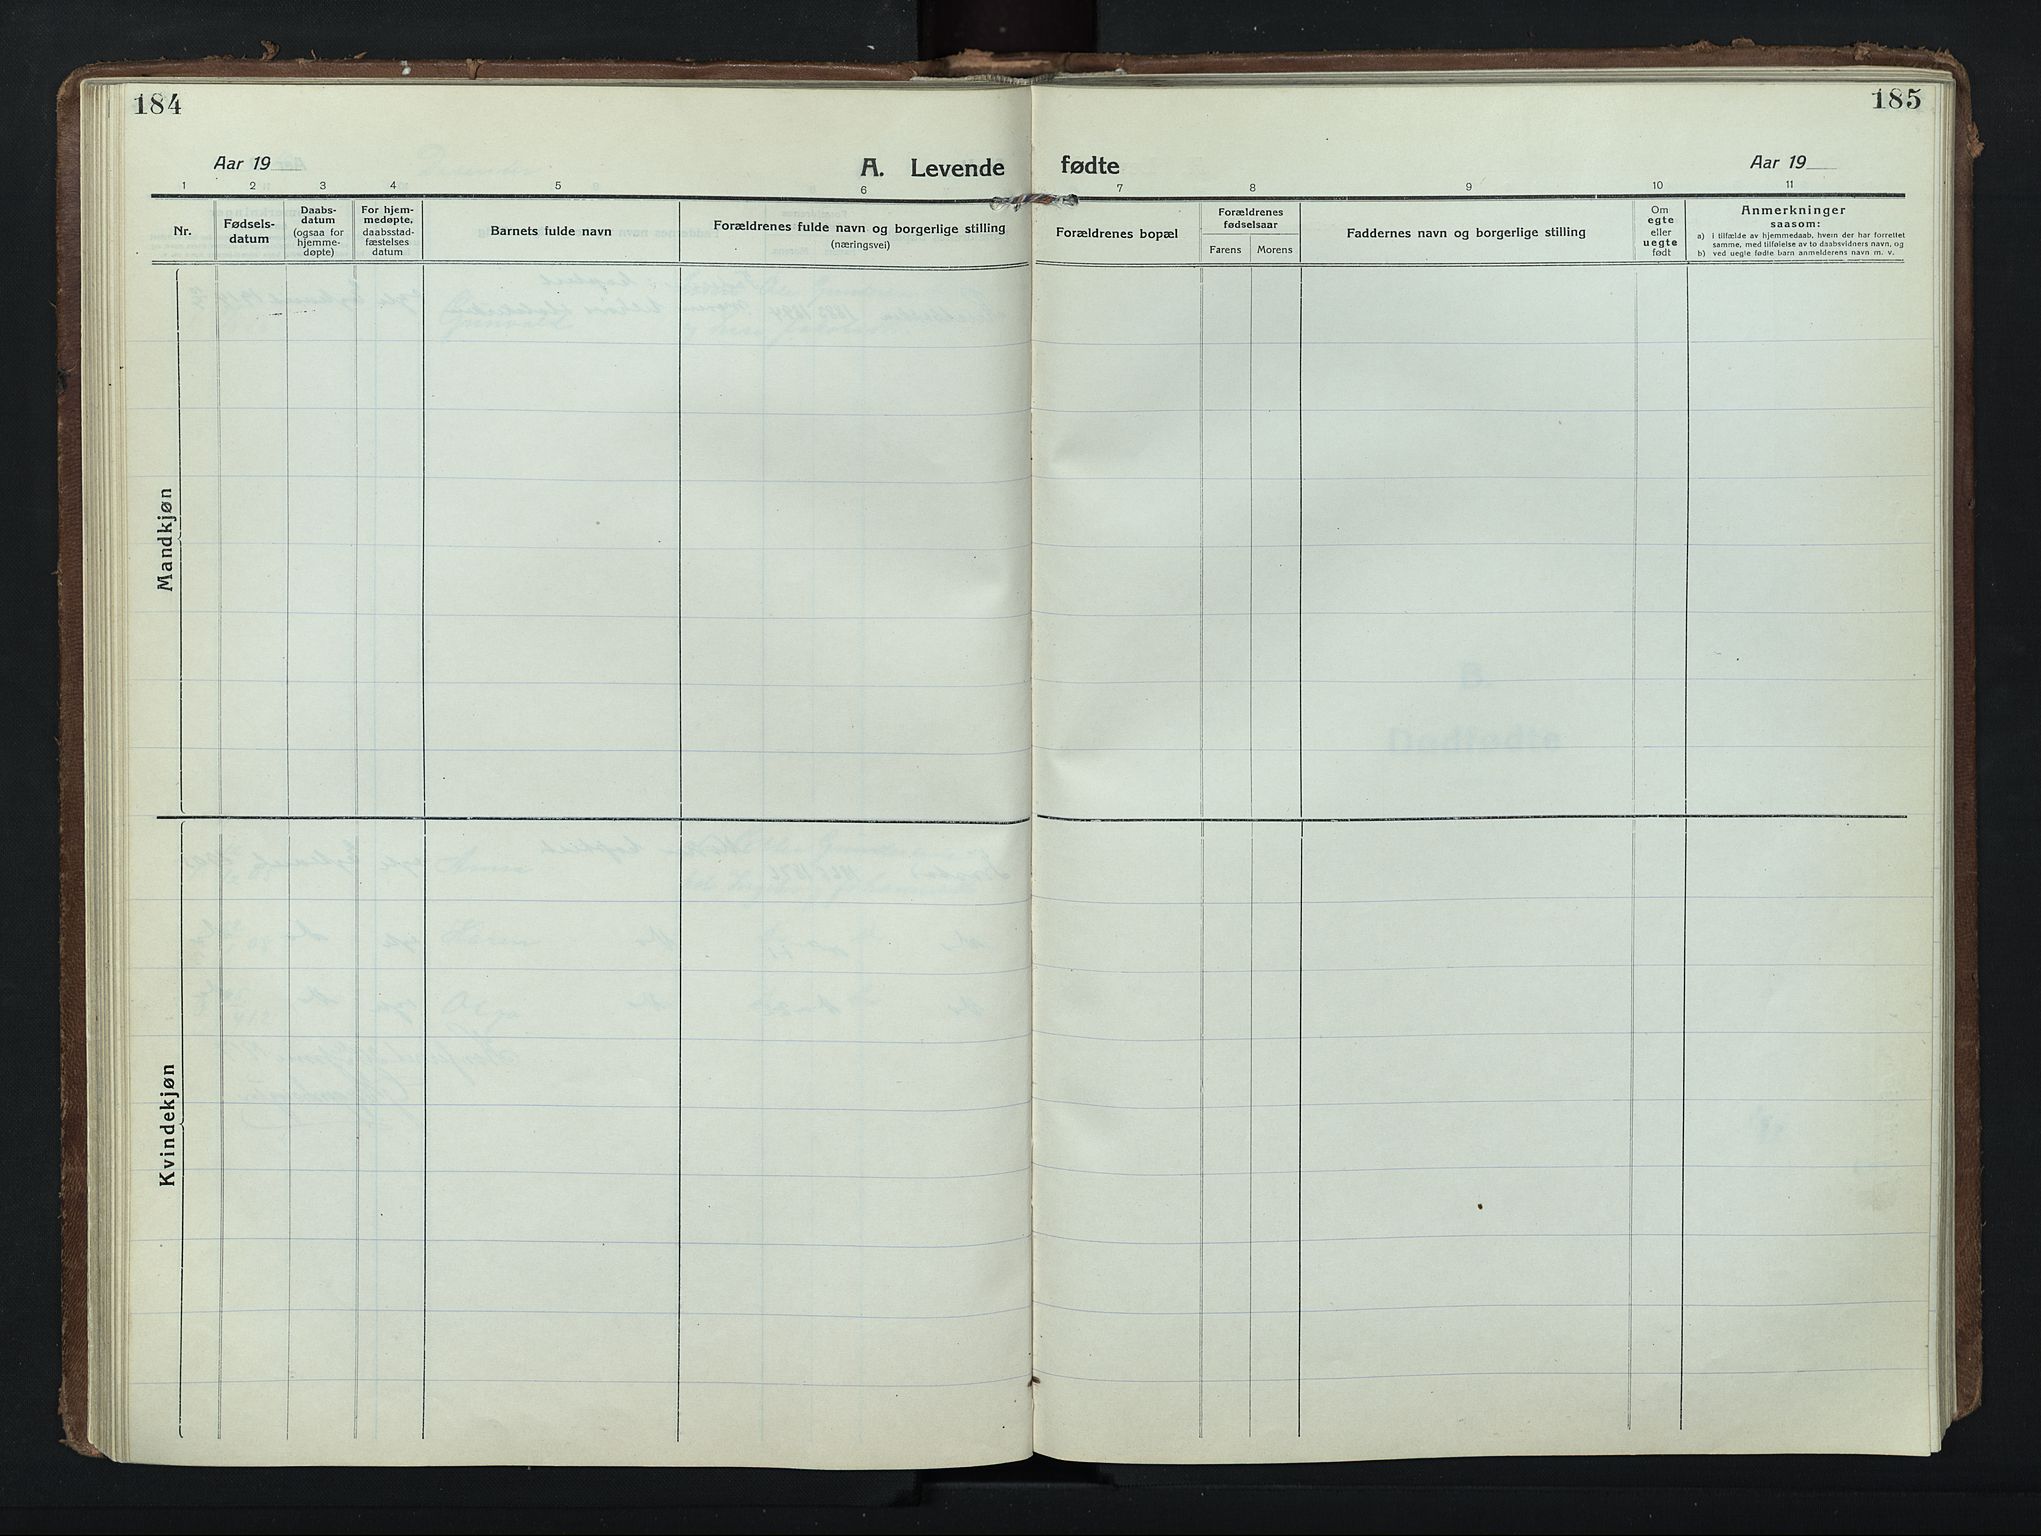 184
185
Aar 19
A. Levende fødte
Aar 19
1 2 3 4 5 6 7 8 9 10 11
Nr.
Fødsels-
datum
Daabs-
datum
(ogsaa for
hjemme-
døpte)
For hjem-
medøpte,
daabsstad-
fæstelses
datum
Barnets fulde navn
Forældrenes fulde navn og borgerlige stilling
(næringsvei)
Forældrenes bopæl
Forældrenes
fødselsaar
Farens Morens
Faddernes navn og borgerlige stilling
Om
egte
eller
uegte
født
Anmerkninger
saasom:
a) i tilfælde av hjemmedaab, hvem der har forrettet
samme, med tilføielse av to daabsvidners navn, og
b) ved uegte fødte barn anmelderens navn m. v.
Mandkjøn
Kvindekjøn